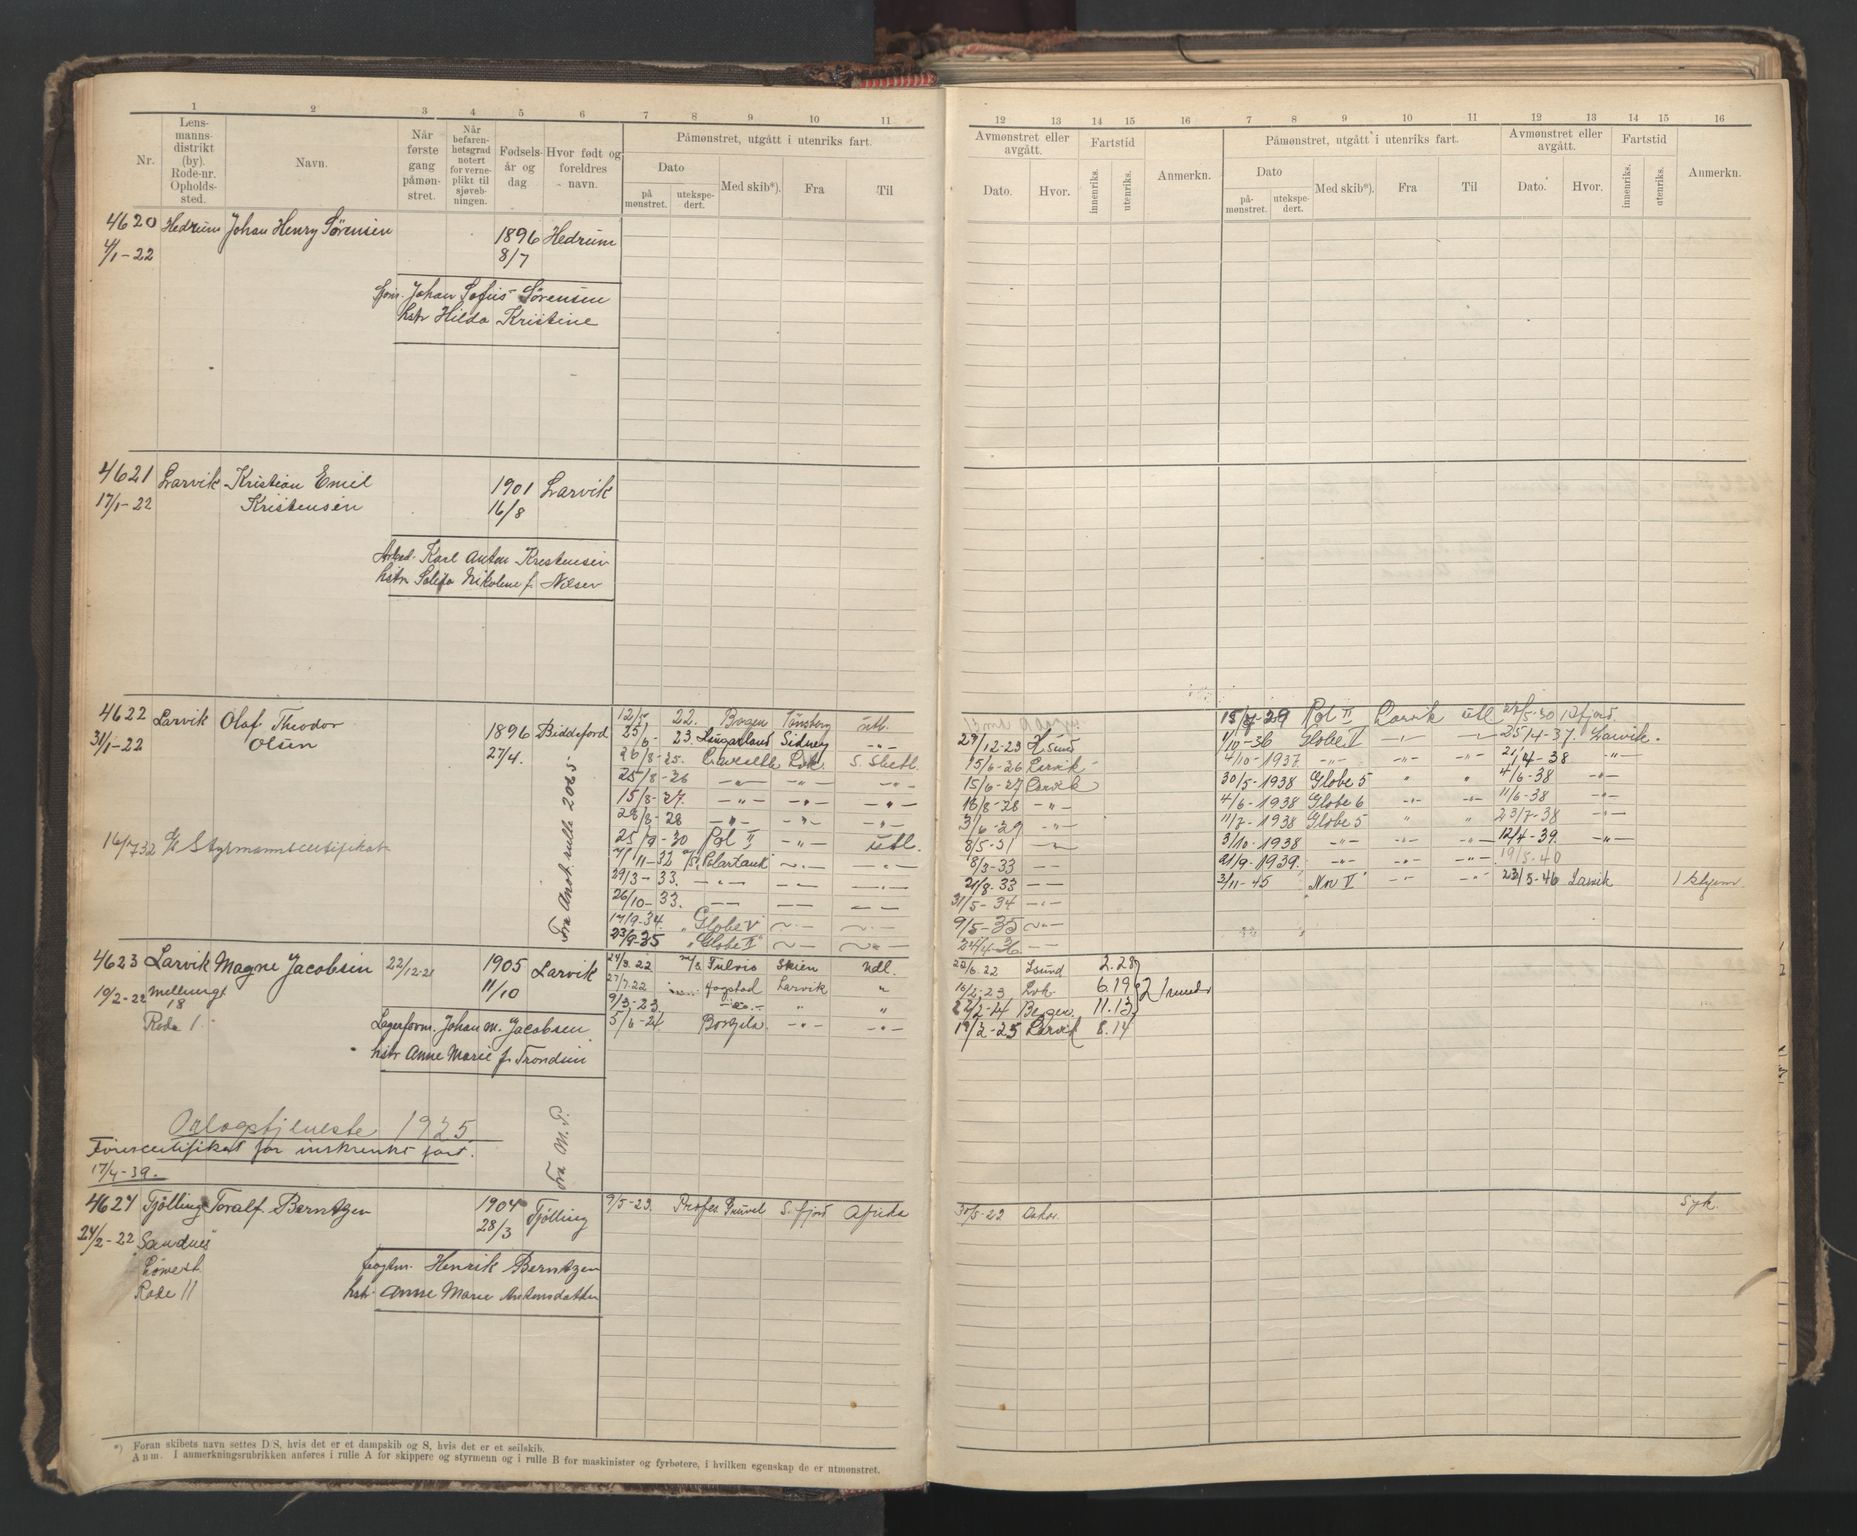 1 2 3 4 5 6 7 8 9 10 11
Nr.
Lensmannsdistrikt (by). Rode-nr. Opholdssted.
Navn.
Når første gang påmønstret.
Når befarenhetsgrad notert for verneplikt til sjøvebningen.
Fødselsår og dag
Hvor født og foreldres navn.
Påmønstret, utgått i utenriks fart.
Dato
på mønstret.
utekspedert.
Med skib*).
Fra
Til
4620 Hedrum Johan Henry Sørensen 1896 Hedrum
4/1-22 8/7
Johan Sofus Sørensen
hstr Hilda Kristine
4621 Larvik Kristian Emil 1901 Larvik
17/1-22 Kristensen 16/8
Arbed. Karl Anton Kristensen
hstr. Nikoline f. Nilsen
4622 Larvik Olaf Theodor 1896 Biddeford 12/5 22. Bogen Tønsberg utl.
31/1-22 Olsen 27/4. 25/6- 23. Sidney -"-
26/8-25. Lvk.
25/8-26 -"- -"- -"-
15/8-27. -"- -"- -"-
28/8-28 -"- -"- -"-
16/7 32 Styrmannscertifikat 25/9-30 Pol II -"- utl.
Fra Anot. rulle 2065
7/11-32 M/S. Polartank -"- -"-
29/3-33. -"- -"- -"-
26/10-33. -"- -"- -"-
17/9-34. "Globe V" -"- -"-
23/9-35 "Globe II" -"- -"-
4623 Larvik Magne Jacobsen 22/12-21 1905 Larvik 24/3.22 M/S. Fulvio Skien Udl.
10/2-22 11/10 27/7.22 Hogstad Larvik "
18 9/3-23 -"- " "
Rode 1. 5/6-24 Borgila -"- -"-
Lagerform. Johan M. Jacobsen
hstr Anne Marie f. Trondsen
Orlogstjeneste 1925.
Fra M. P.
Førercertifikat for inskrenket fart.
17/4-39.
4624 Tjølling Toralf Berntzen 1904 Tjølling 9/5-23. S. fjord Afrika
24/2-22 Sandnes 28/3
Rode 11
Henrik Berntzen
hstr. Anne Marie Antonsdatter
*) Foran skibets navn settes D S, hvis det er et dampskib og S, hvis det er et seilskib.
Anm. I anmerkningsrubrikken anføres i rulle A for skippere og styrmenn og i rulle B for maskinister og fyrbøtere, i hvilken egenskap de er utmønstret.
12 13 14 15 16 7 8 9 10 11 12 13 14 15 16
Avmønstret eller avgått.
Dato.
Hvor.
Fartstid
innenriks.
utenriks.
Anmerkn.
Påmønstret, utgått i utenriks fart.
Dato
påmønstret.
utekspedert.
Med skib*).
Fra
Til
Avmønstret eller avgått.
Dato.
Hvor.
Fartstid
innenriks.
utenriks.
Anmerkn.
Pol II Larvik utl
29/12-23 H.sund 1/10-36 Globe V -"- -"- 25/4-37 Larvik.
15/6-26 Larvik 4/10-1937 -"- -"- -"- -"-
15/6-27 Larvik 30/5-1938 Globe 5 " " 4/6-38 -"-
16/8-28 -"- 4/6-1938 Globe 6 -"- -"- 11/6-38 -"-
3/6-29 -"- 11/7-1938 Globe 5 " " 23/7-38 -"-
8/5-31 -"- 3/10-1938 -"- -"- -"- 12/4-39. -"-
8/3-33 -"- 21/9-1939. -"- -"- -"- 19/5-40
21/8-33 -"- 3/11-45 -"- -"- 23/5-46 Larvik
31/5-34 -"-
9/5-35 -"-
24/4-36 -"-
6.22 2.28
16/2-23 Lvk. 6.19
Bergen. 11.13
19/2-25 Larvik 8.14
30/5-22 Syk.